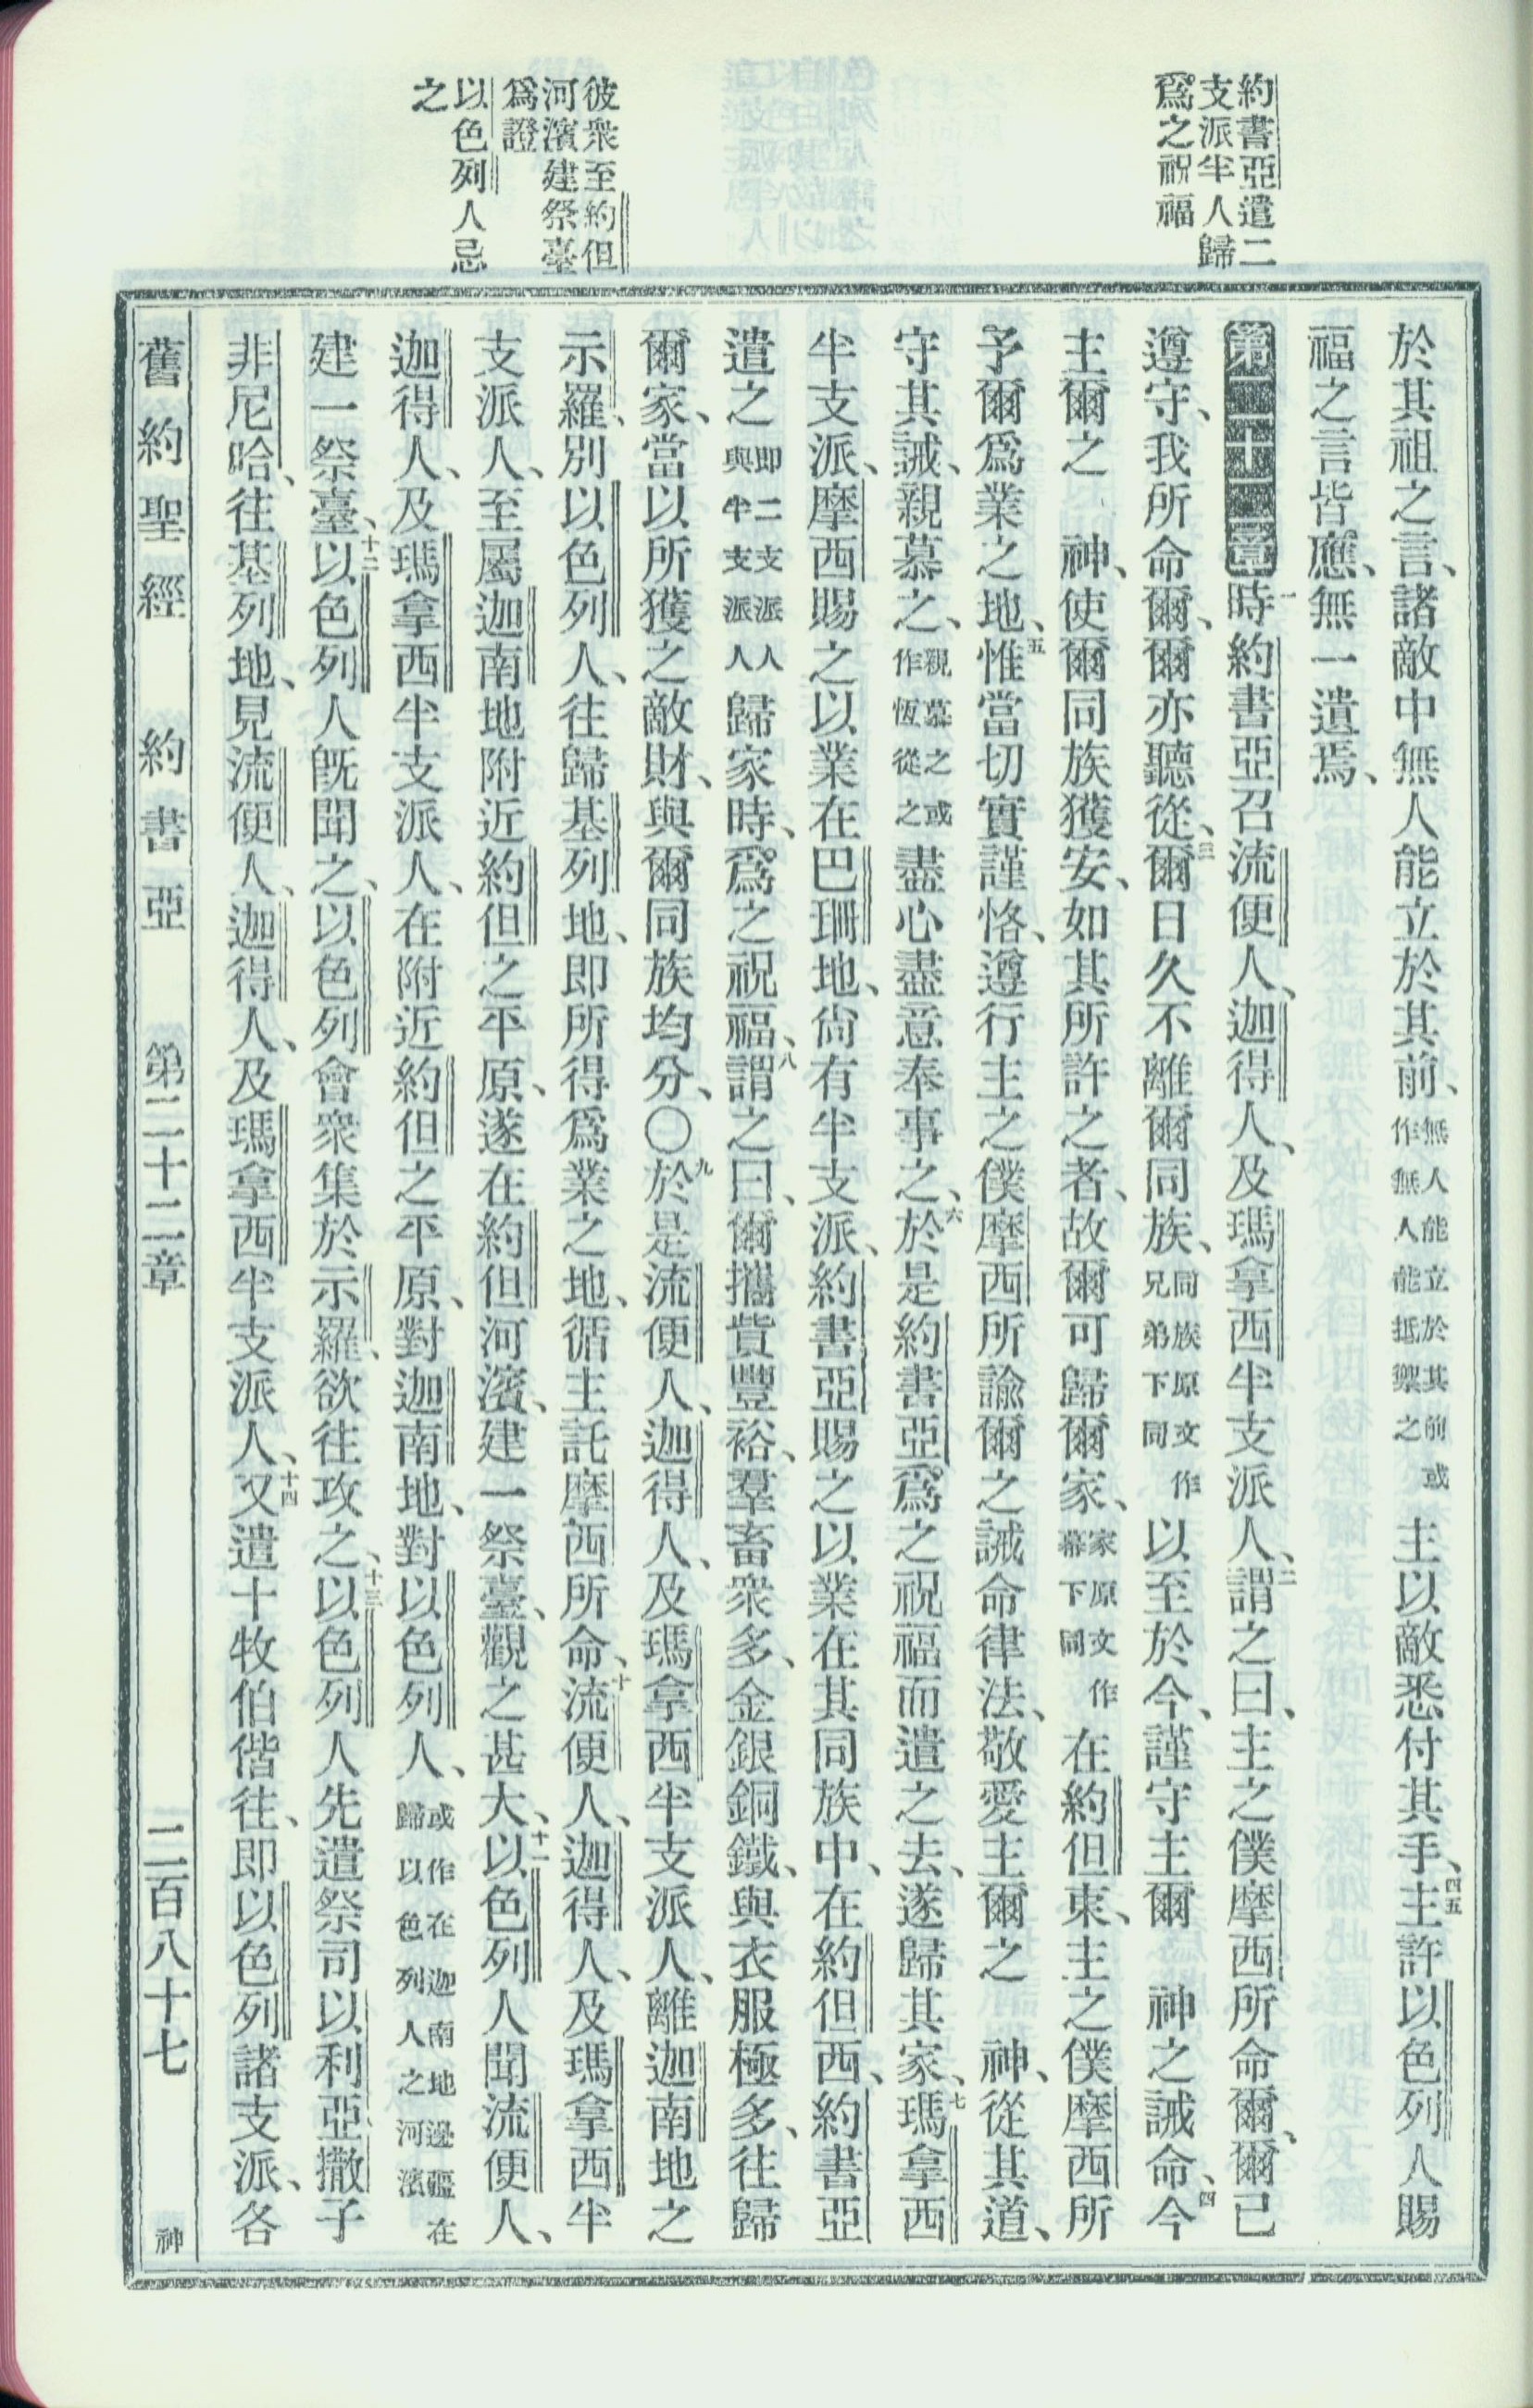 約書亞遣二
支派半人歸
爲之祝福
彼衆至約但
河濱建祭臺
爲證
以色列人忌
之
於其祖之言、諸敵中無人能立於其前、無人能立於其前或作無人能抵禦之主以敵悉付其手、四五主許以色列人賜
福之言皆應、無一遺焉、
第二十二章一時約書亞召流便人、迦得人、及瑪拿西半支派人、二謂之曰、主之僕摩西所命爾、爾已
遵守、我所命爾、爾亦聽從、三爾日久不離爾同族、同族原文作兄弟下同以至於今、謹守主爾 神之誡命、四今
主爾之 神、使爾同族獲安、如其所許之者、故爾可歸爾家、家原文作幕下同在約但東、主之僕摩西所
予爾爲業之地、五惟當切實謹恪、遵行主之僕摩西所諭爾之誡命律法、敬愛主爾之 神、從其道、
守其誡、親慕之、親慕之或作恆從之盡心盡意奉事之、六於是約書亞爲之祝福而遣之去、遂歸其家、七瑪拿西
半支派、摩西賜之以業在巴珊地、尙有半支派、約書亞賜之以業在其同族中、在約但西、約書亞
遣之卽二支派人與半支派人歸家時、爲之祝福、八謂之曰、爾攜貲豐裕、羣畜衆多、金銀銅鐵、與衣服極多、往歸
爾家、當以所獲之敵財、與爾同族均分、〇九於是流便人、迦得人、及瑪拿西半支派人、離迦南地之
示羅、別以色列人、往歸基列地、卽所得爲業之地、循主託摩西所命、十流便人、迦得人、及瑪拿西半
支派人、至屬迦南地附近約但之平原、遂在約但河濱、建一祭臺、觀之甚大、十一以色列人聞流便人、
迦得人、及瑪拿西半支派人、在附近約但之平原、對迦南地、對以色列人、或作在迦南地邊疆在歸以色列人之河濱
建一祭臺、十二以色列人旣聞之、以色列會衆集於示羅、欲往攻之、十三以色列人先遣祭司以利亞撒子
非尼哈、往基列地、見流便人、迦得人、及瑪拿西半支派人、十四又遣十牧伯偕往、卽以色列諸支派、各
舊約聖經 約書亞 第二十二章 二百八十七 神